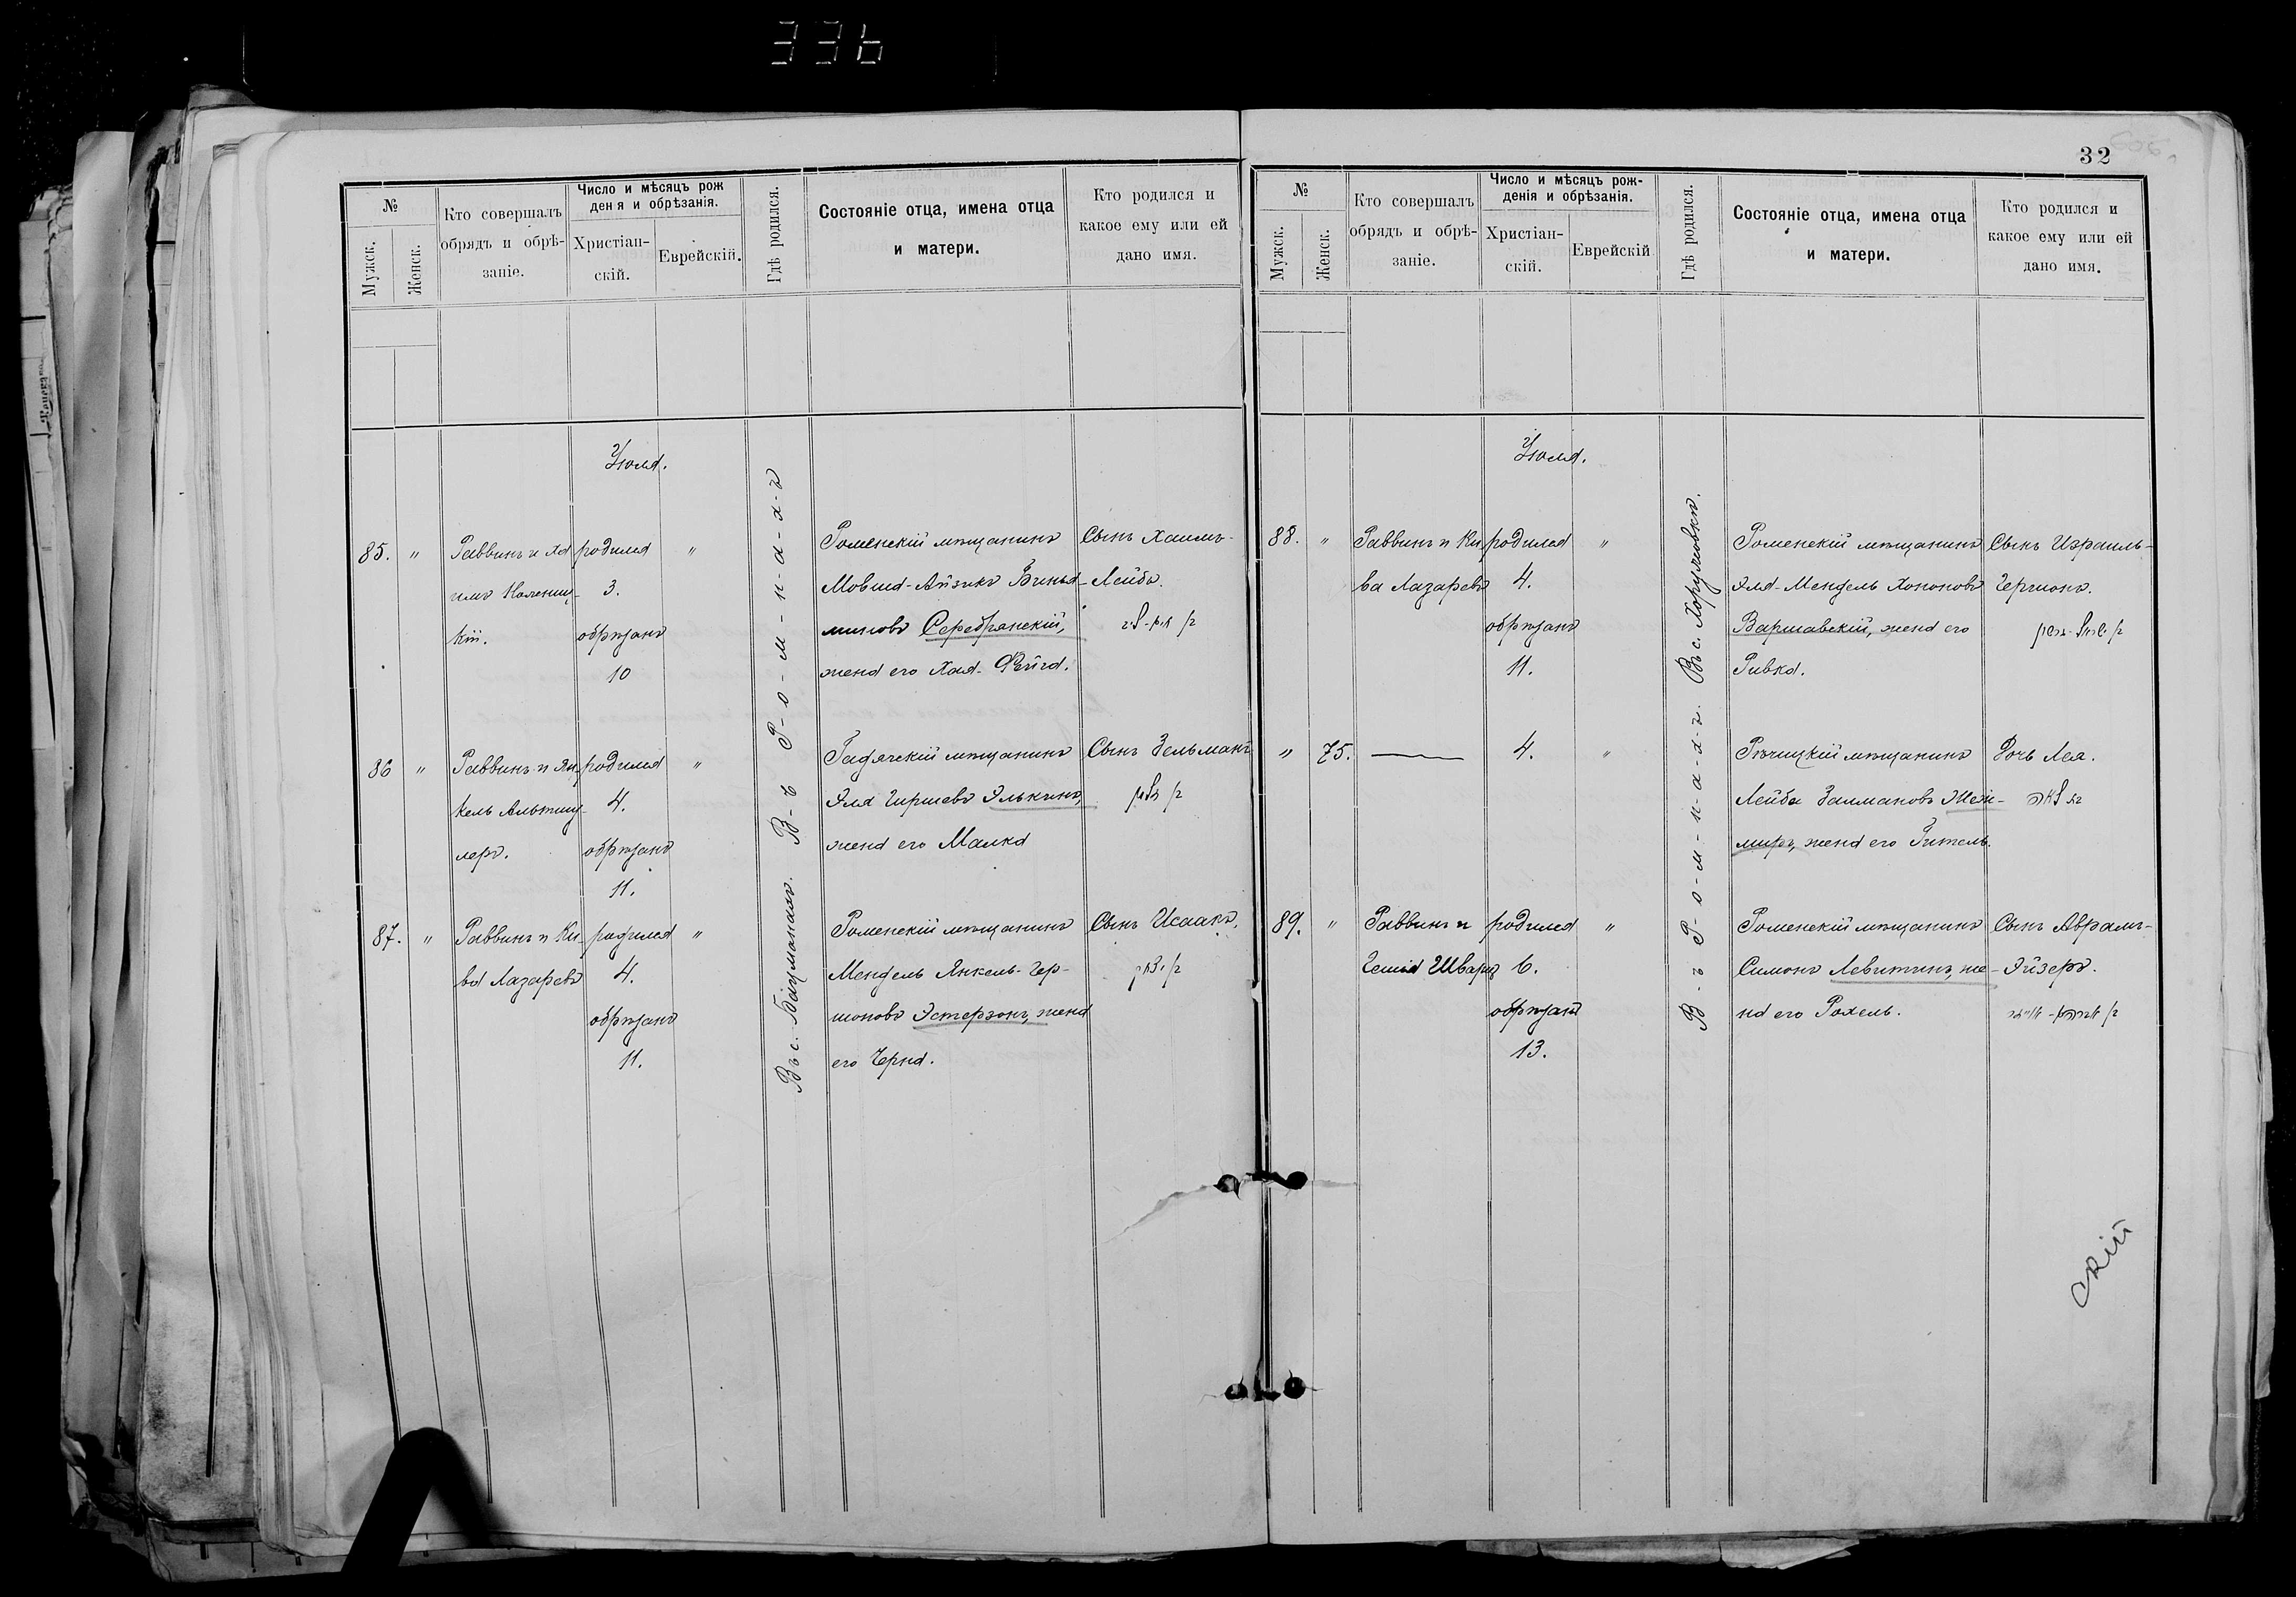 336
32
№
Мужск.
Женск.
Кто совершалъ
обрядъ и обрѣ-
заніе.
Число и мѣсяцъ рож
ден я и обрѣзанія.
Христіан-
скій.
Еврейскій.
Гдѣ родился.
Состояніе отца, имена отца
и матери.
Кто родился и
какое ему или ей
дано имя.
Іюля.
В-ъ Р-о-м-н-а-х-ъ
85. " Раввинъ и Ха
имъ Калениц-
кій.
родился "
3.
обрѣзанъ
10
Роменскій мѣщанинъ
Мовша-Айзикъ Бинья-
миновъ Серебрянскій,
жена его Хая-Фейга.
Сынъ Хаимъ-
Лейбъ.
86 " Раввинъ и Ян-
кель Альтшу-
леръ.
родился "
4.
обрѣзанъ
11.
Гадячскій мѣщанинъ
Эля Гиршевъ Элькинъ,
жена его Малка
Сынъ Зельманъ
בן זלמן
87. " Раввинъ и Ки-
ва Лазаревъ
родился "
4.
обрѣзанъ
11.
Въ с. Бацманахъ.
Роменскій мѣщанинъ
Мендель Янкель-Гер-
шоновъ Эстерзонъ, жена
его Черна.
Сынъ Исаакъ.
בן יצחק
№
Мужск.
Женск.
Кто совершалъ
обрядъ и обрѣ-
заніе.
Число и мѣсяцъ рож-
денія и обрѣзанія.
Христіан-
скій.
Еврейскій
Гдѣ родился.
Состояніе отца, имена отца
и матери.
Кто родился и
какое ему или ей
дано имя.
Іюля.
88. " Раввинъ и Ки-
ва Лазаревъ
родился "
4.
обрѣзанъ
11.
Въ с. Хоружовка.
Роменскій мѣщанинъ
Эля-Мендель Хононовъ
Варшавскій, жена его
Ривка.
Сынъ Израиль-
Гершонъ.
בן ישראל-גרשון
" 75. — 4. "
В-ъ Р-о-м-н-а-х-ъ.
Рѣчицкій мѣщанинъ
Лейба Залмановъ Жеж-
миръ, жена его Гитель.
Дочь Лея.
בת לאה
89. " Раввинъ и
Гешия Шварц
родился "
6.
обрѣзанъ
13.
Роменскій мѣщанинъ
Симонъ Левитинъ, же-
на его Рохель.
Сынъ Аврамъ-
Эйзеръ.
скій